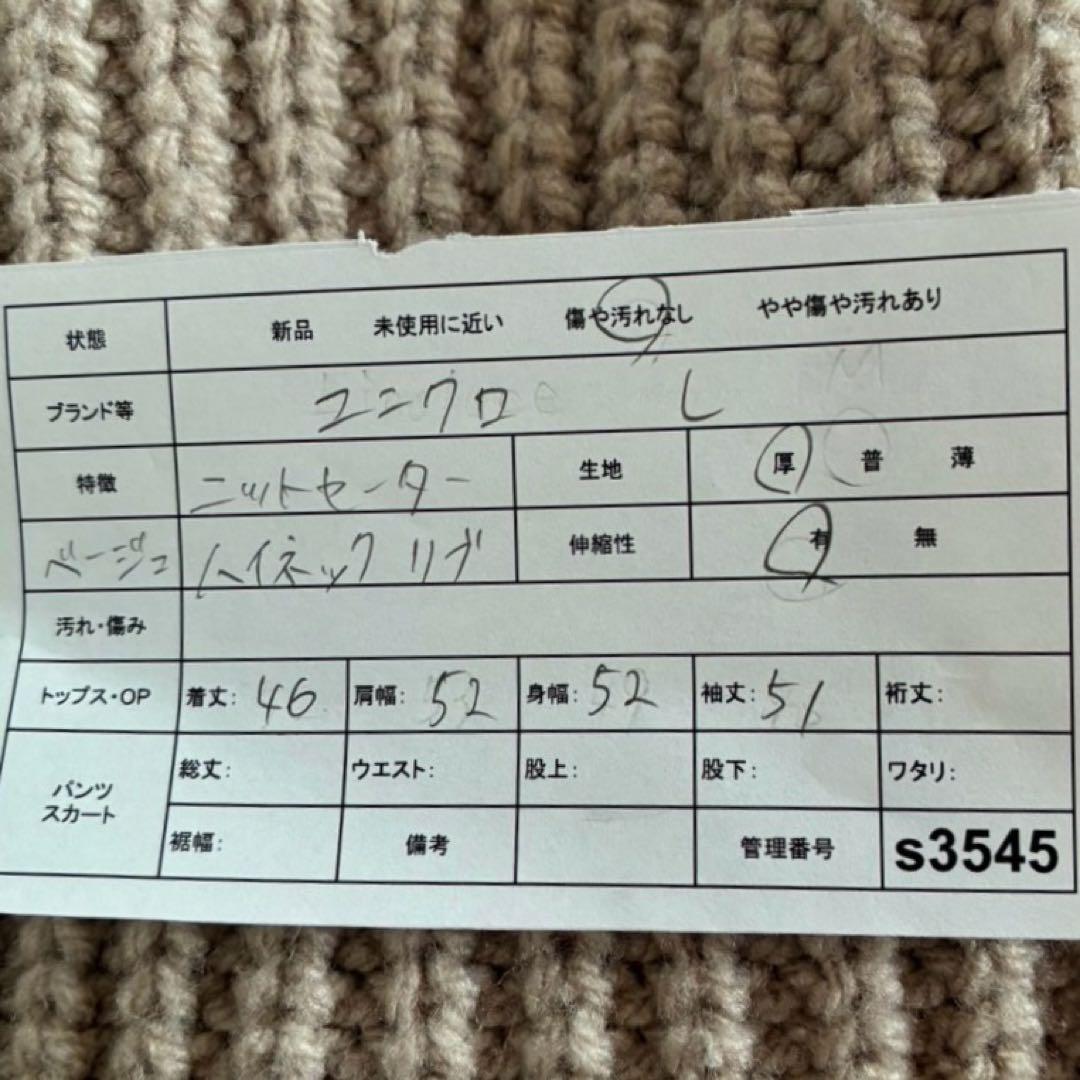 状態 新品 未使用に近い 傷や汚れなし やや傷や汚れあり
ブランド等 ユニクロ L
特徴 ニットセーター 生地 厚 普 薄
ベージュ ハイネック リブ 伸縮性 有 無
汚れ・傷み
トップス・OP 着丈: 46 肩幅: 52 身幅: 52 袖丈: 51 裄丈:
パンツ スカート 総丈: ウエスト: 股上: 股下: ワタリ:
裾幅: 備考 管理番号 s3545